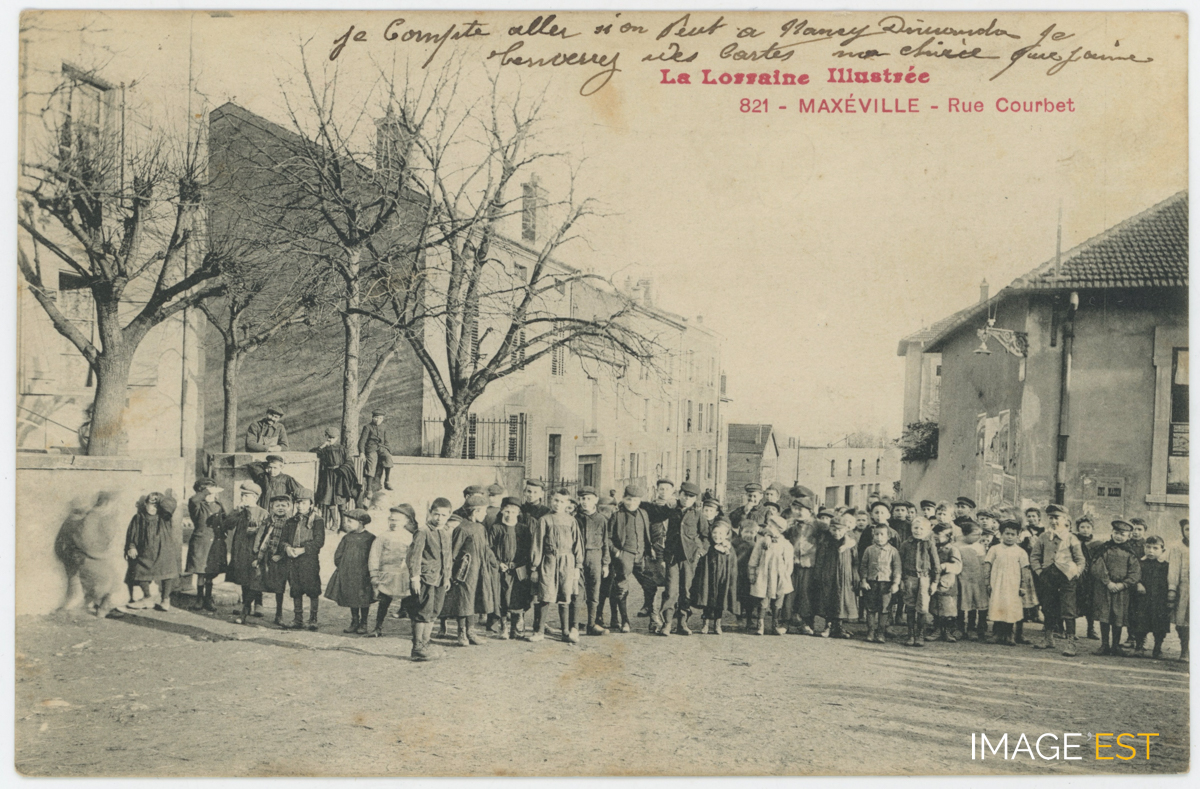 je Compte aller si on Peut a Nancy Dimanche Je
tenverrez des Cartes ma chérie que j'aime
La Lorraine Illustrée
821 - MAXÉVILLE - Rue Courbet
IMAGE'EST